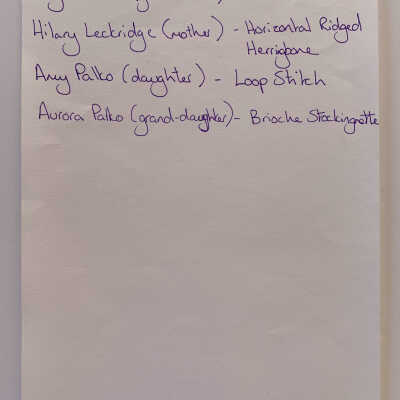 Hilary Leckridge (mother) - Horizontal Ridged
Herringbone
Amy Palko (daughter) - Loop Stitch
Aurora Palko (grand-daughter) - Brioche Stockingnette